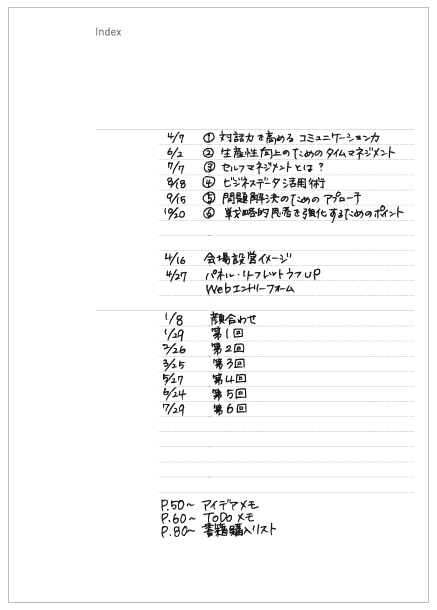 Index
4/7 ① 対話力を高める コミュニケーション力
6/2 ② 生産性向上のためのタイムマネジメント
7/7 ③ セルフマネジメントとは？
8/18 ④ ビジネスデータ活用術
9/15 ⑤ 問題解決のためのアプローチ
10/20 ⑥ 戦略的思考を強化するためのポイント
4/16 会場設営イメージ
4/27 パネル・リーフレットラフUP
Webエントリーフォーム
1/8 顔合わせ
1/29 第1回
2/26 第2回
3/25 第3回
5/27 第4回
6/24 第5回
7/29 第6回
P.50〜 アイデアメモ
P.60〜 ToDoメモ
P.80〜 書籍購入リスト